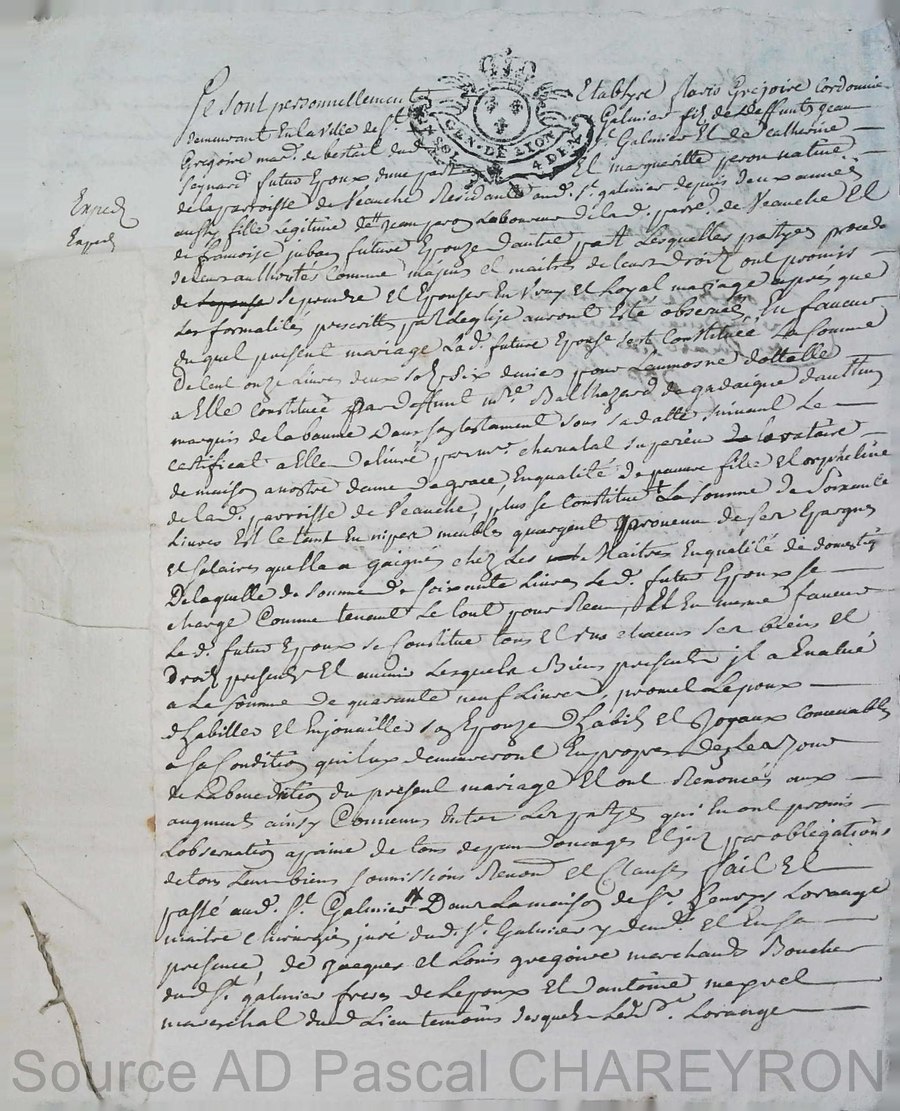 GEN. DE LION
4 DEN
Expedié
Expedié
Se sont personnellement Establys Grégoire Cordonnier
demeurant En la ville de St Galmier fils de deffunts Jean
Grégoire mard. de bestail dud. St. Galmier Et de Catherine
futur Epoux dune part Et margueritte peron native
de la parroisse de Veauche Residante aud. St. galmier depuis deux années
aussy fille legitime de Jean peron Laboureur de lad. parr. de Veauche Et
de francoise juban future Epouze dautre part Lesquelles partyes procedant
de leurs authorités Comme majeurs et maitres de leurs Droits ont promis
de Se prendre Et Epouser En vray Et Loyal mariage après que
Les formalités prescrittes par Leglize auront Esté observés, En faveur
duquel present mariage Lad. future Epouse sest Constituée La Somme
De Cent onze Livres deux sols six deniers pour Laumosne dottalle
a Elle Constituée par deffunt Balthazard de gadaigne dauthun
marquis de la baume Dans son testament sous sa datte suivant Le
certificat a Elle delivré par mr. superieur
de maison a nostre dame de grace, En qualité de pauvre fille Et orpheline
de lad. parroisse de Veauche, plus se Constitue La Somme de Soixante
Livres Et Ce tant En nipes meubles quargent provenu de ses Epargnes
Et Salaires quelle a gaignés chez Les Maitres En qualité de domestiq
De laquelle de somme de soixante Livres Led. futur Epoux se
charge Comme tenant Le tout pour Reçu, Et En mesme faveur
Led. futur Epoux se Constitue tous Et un chacuns ses biens Et
Droits presents Et avenir Lesquels Biens presents jl a Evalué
a La Somme de quarante neuf Livres, promet Lepoux
dhabiller Et Enjoualler son Epouze dhabits Et Joyaux Convenables
a sa Condition qui luy demeureront En propres dez Le Jour
de La benediction du present mariage Et ont Renoncés aux
augment ainsy Convenu Entre Les partyes qui En ont promis
Lobservation a paine de tous depens domages Et par obligations
de tous Leurs biens soumissions Renon Et Clauses fait Et
passé aud. St. Galmier Dans La maison de Sr. Lorange
maitre chirurgien juré dud. St. Galmier y dem. Et En sa
presence, de Jacques Et Louis gregoire marchands Boucher
dud St. galmier freres de Lepoux Et dantoine
mareschal dud Lieu temoins desquels Led. Sr. Lorange
Source AD Pascal CHAREYRON